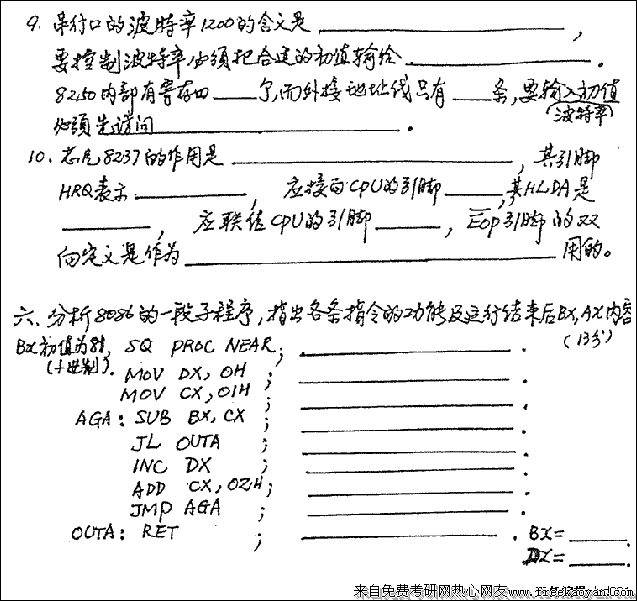 9. 串行口的波特率1200的含义是____________,
要控制波特率必须把合适的初值输给____________.
8250内部有寄存四____个,而外接地址线只有____条,要输入初值
(波特率)
必须先访问____________.
10. 芯片8237的作用是____________,其引脚
HRQ表示________,应接向CPU的引脚____,其HLDA是
________,应联值CPU的引脚____,EOP引脚的双
向定义是作为____________用的。
六、分析8086的一段子程序,指出各条指令的功能及运行结束后BX,AX内容
(13分)
BX初值为 SQ PROC NEAR; ____________.
(十进制). MOV DX, 0H ; ____________.
MOV CX, 01H ; ____________.
AGA: SUB BX, CX ; ____________.
JL OUTA ; ____________.
INC DX ; ____________.
ADD CX, 02H ; ____________.
JMP AGA ; ____________.
OUTA: RET ; ____________. BX=____
DX=____.
来自免费考研网热心网友www.freekaoyan.com